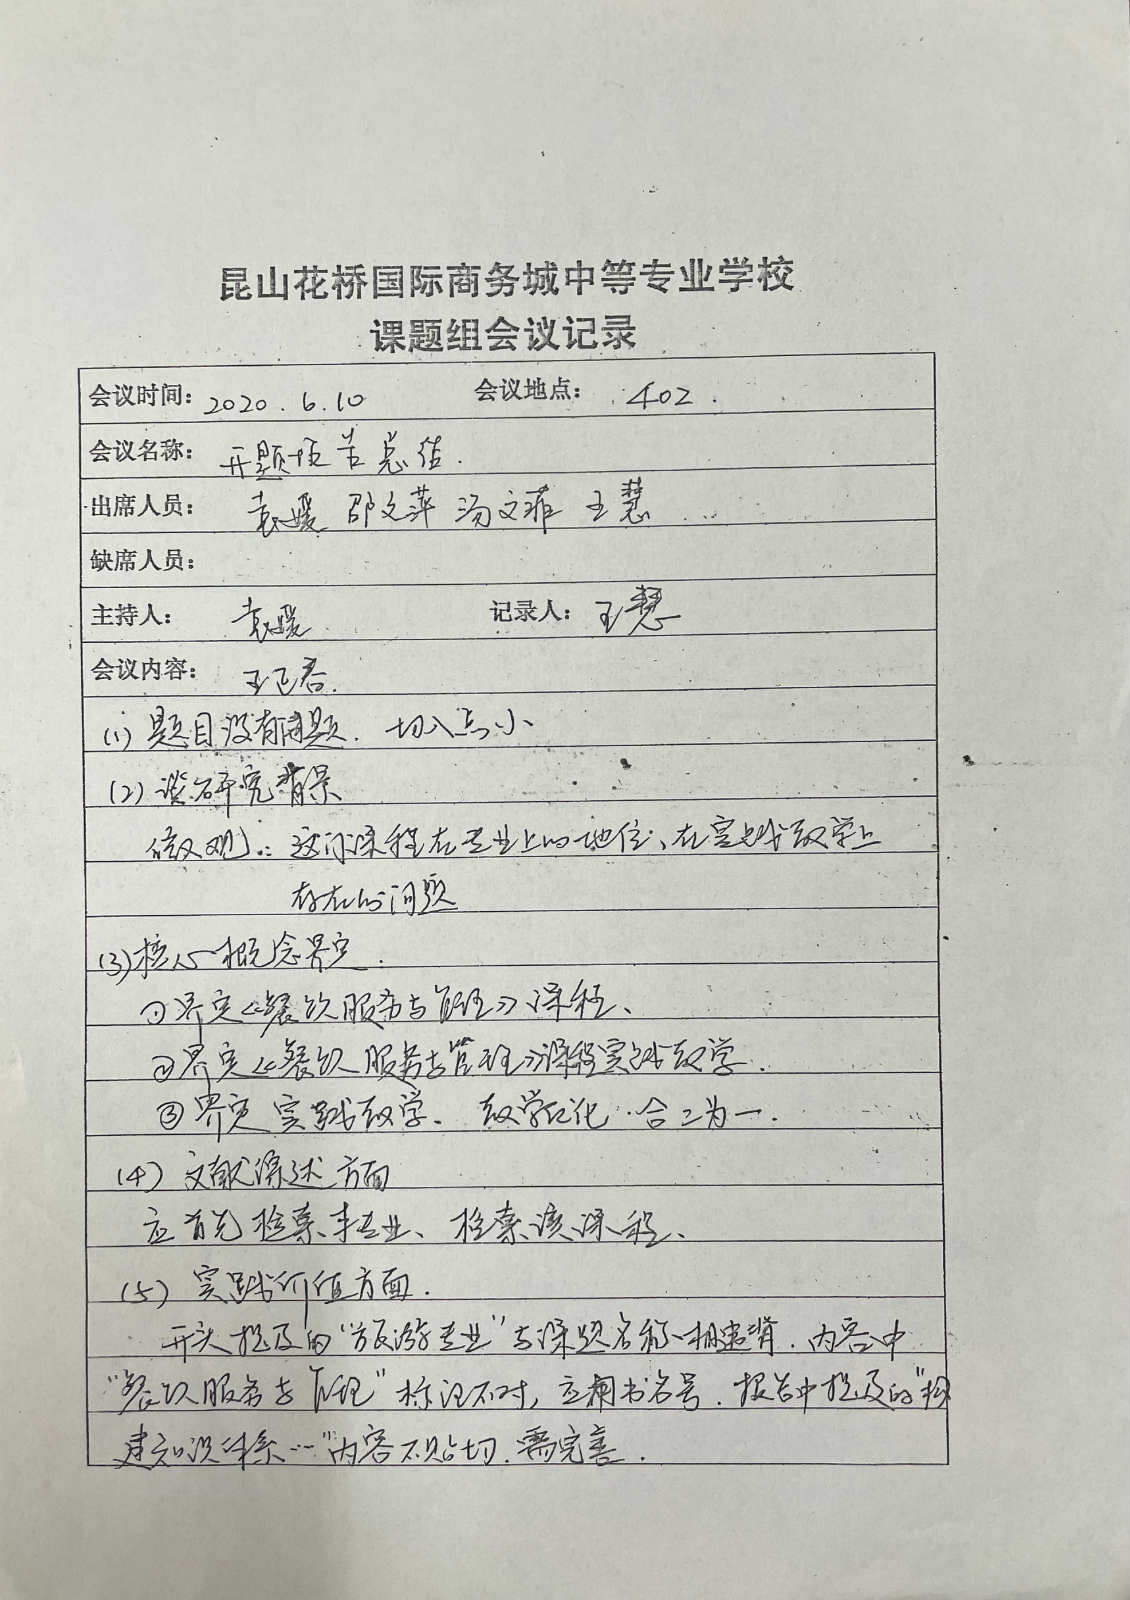 昆山花桥国际商务城中等专业学校
课题组会议记录
会议时间：2020.6.10 会议地点：402.
会议名称：开题报告总结.
出席人员：袁媛 邵文萍 汤文菲 王慧
缺席人员：
主持人：袁媛 记录人：王慧
会议内容：王巨春.
(1) 题目没有问题. 切入点小
(2) 谈研究背景
微观：这门课程在专业上的地位、在实践教学上
存在的问题
(3) 核心概念界定.
①界定《餐饮服务与管理》课程、
②界定《餐饮服务与管理》课程实践教学.
③界定实践教学、教学优化.合二为一.
(4) 文献综述方面
应首先检索本专业、检索该课程、
(5) 实践价值方面.
开头提及的“旅游专业”与课题名称相违背.内容中
“餐饮服务与管理”标注不对，应用书名号.报告中提及的“构
建知识体系…”内容不贴切.需完善.